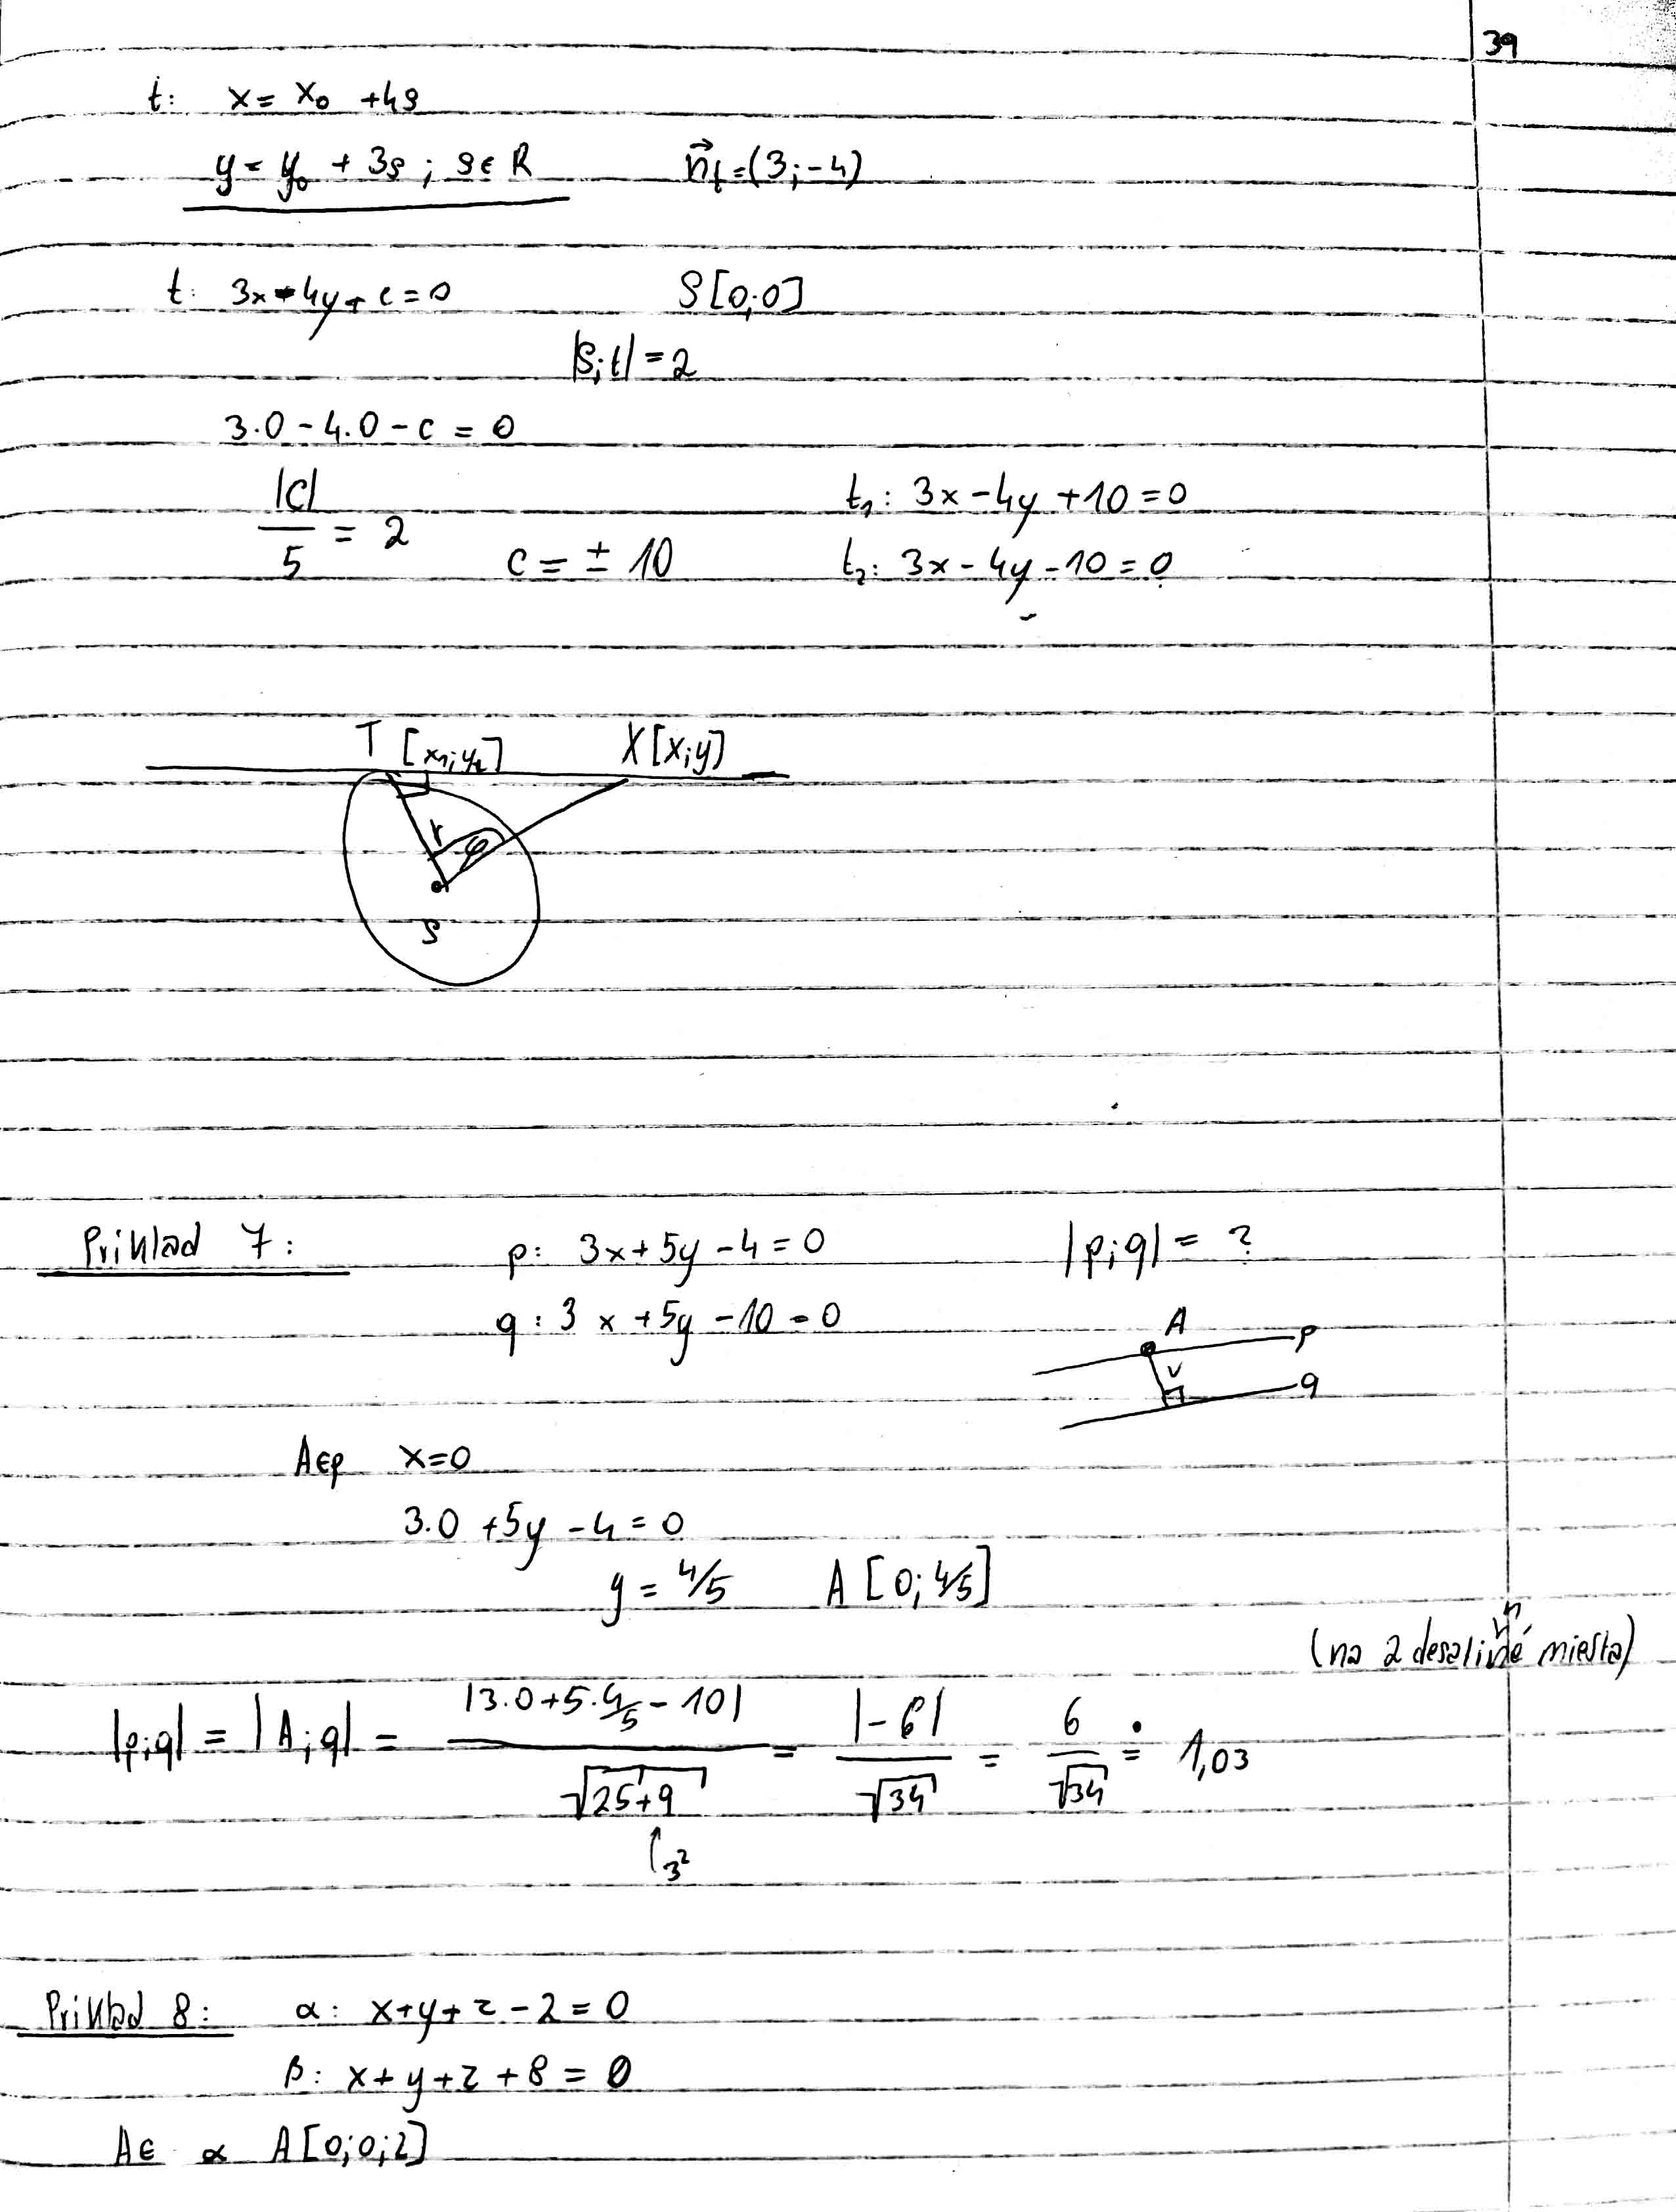 39
t: x = x₀ + 4s
y = y₀ + 3s ; s ∈ R n⃗t = (3;-4)
t: 3x - 4y + c = 0 S[0;0]
|S;t| = 2
3.0 - 4.0 - c = 0
|C|/5 = 2 c = ± 10
t₁: 3x - 4y + 10 = 0
t₂: 3x - 4y - 10 = 0
T [x₁;y₁] X[x;y]
r φ
S
Príklad 7: p: 3x + 5y - 4 = 0 |p;q| = ?
q: 3x + 5y - 10 = 0
A p
v q
A∈p x=0
3.0 + 5y - 4 = 0
y = 4/5 A [0; 4/5]
(na 2 desatinné miesta)
|p;q| = |A;q| = |3.0+5.4/5 - 10| / √25+9 = |-6| / √34 = 6/√34 ≐ 1,03
3²
Príklad 8: α: x+y+z-2=0
β: x+y+z+8=0
A∈ α A[0;0;2]